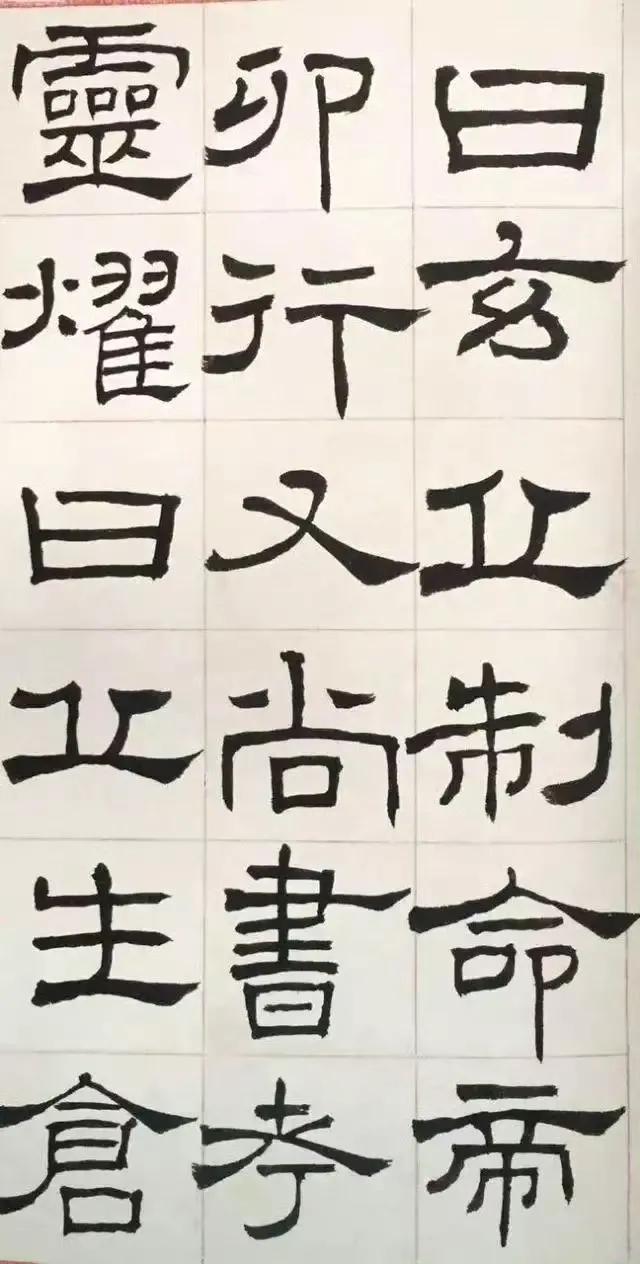 曰玄丘制命帝
卯行又尚書考
靈燿曰丘生倉